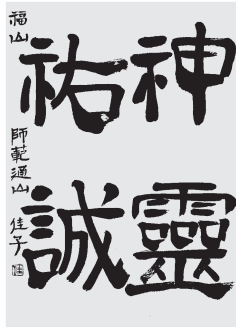 神靈
祐誠
福山 師範通山 佳子